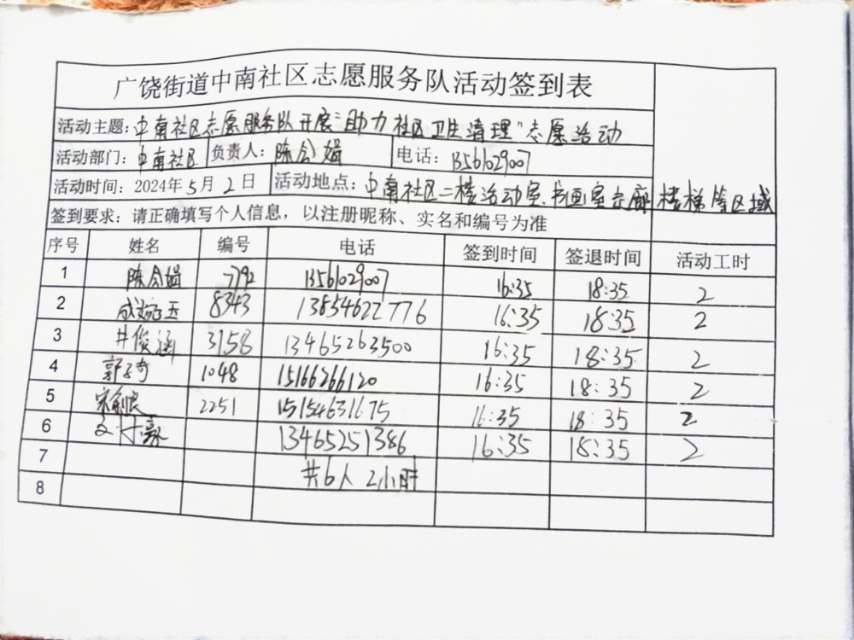 广饶街道中南社区志愿服务队活动签到表
活动主题：中南社区志愿服务队开展“助力社区卫生清理”志愿活动
活动部门：中南社区 负责人：陈会娟 电话：13561029007
活动时间：2024年5月2日 活动地点：中南社区二楼活动室、书画室走廊楼梯等区域
签到要求：请正确填写个人信息，以注册昵称、实名和编号为准
序号 姓名 编号 电话 签到时间 签退时间 活动工时
1 陈会娟 7792 13561029007 16:35 18:35 2
2 8343 13854622776 16:35 18:35 2
3 井俊涵 3158 13465263500 16:35 18:35 2
4 1048 15166266120 16:35 18:35 2
5 2251 15154631675 16:35 18:35 2
6 13465251386 16:35 18:35 2
7 共6人 2小时
8